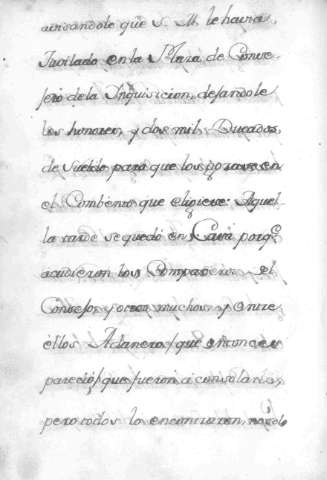 avisandole que S. M. le havia
Juvilado en la Plaza de Conse
jero de la Inquisicion, dejandole
los honores, y dos mil Ducados,
de Sueldo para que los gozase en
el Combento que eligiese: Aquel
la tarde se quedó en Casa porq.e
acudieron los Compañeros del
Consejo, y otros muchos y entre
éllos Adanero, que entonces
pareció, que fueron a consolarlo,
pero todos lo encontraron, no solo